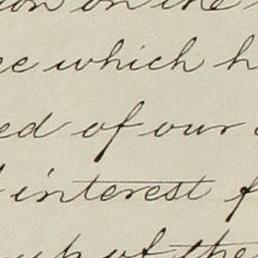 on on the
which h
ed of our
interest f
up of the